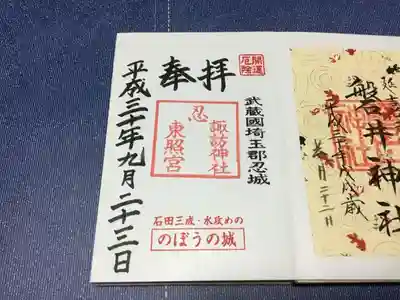 開運
厄除
奉拝
武蔵國埼玉郡忍城
忍
諏訪神社
東照宮
平成三十年九月二十三日
石田三成・水攻めの
のぼうの城
磐井神社